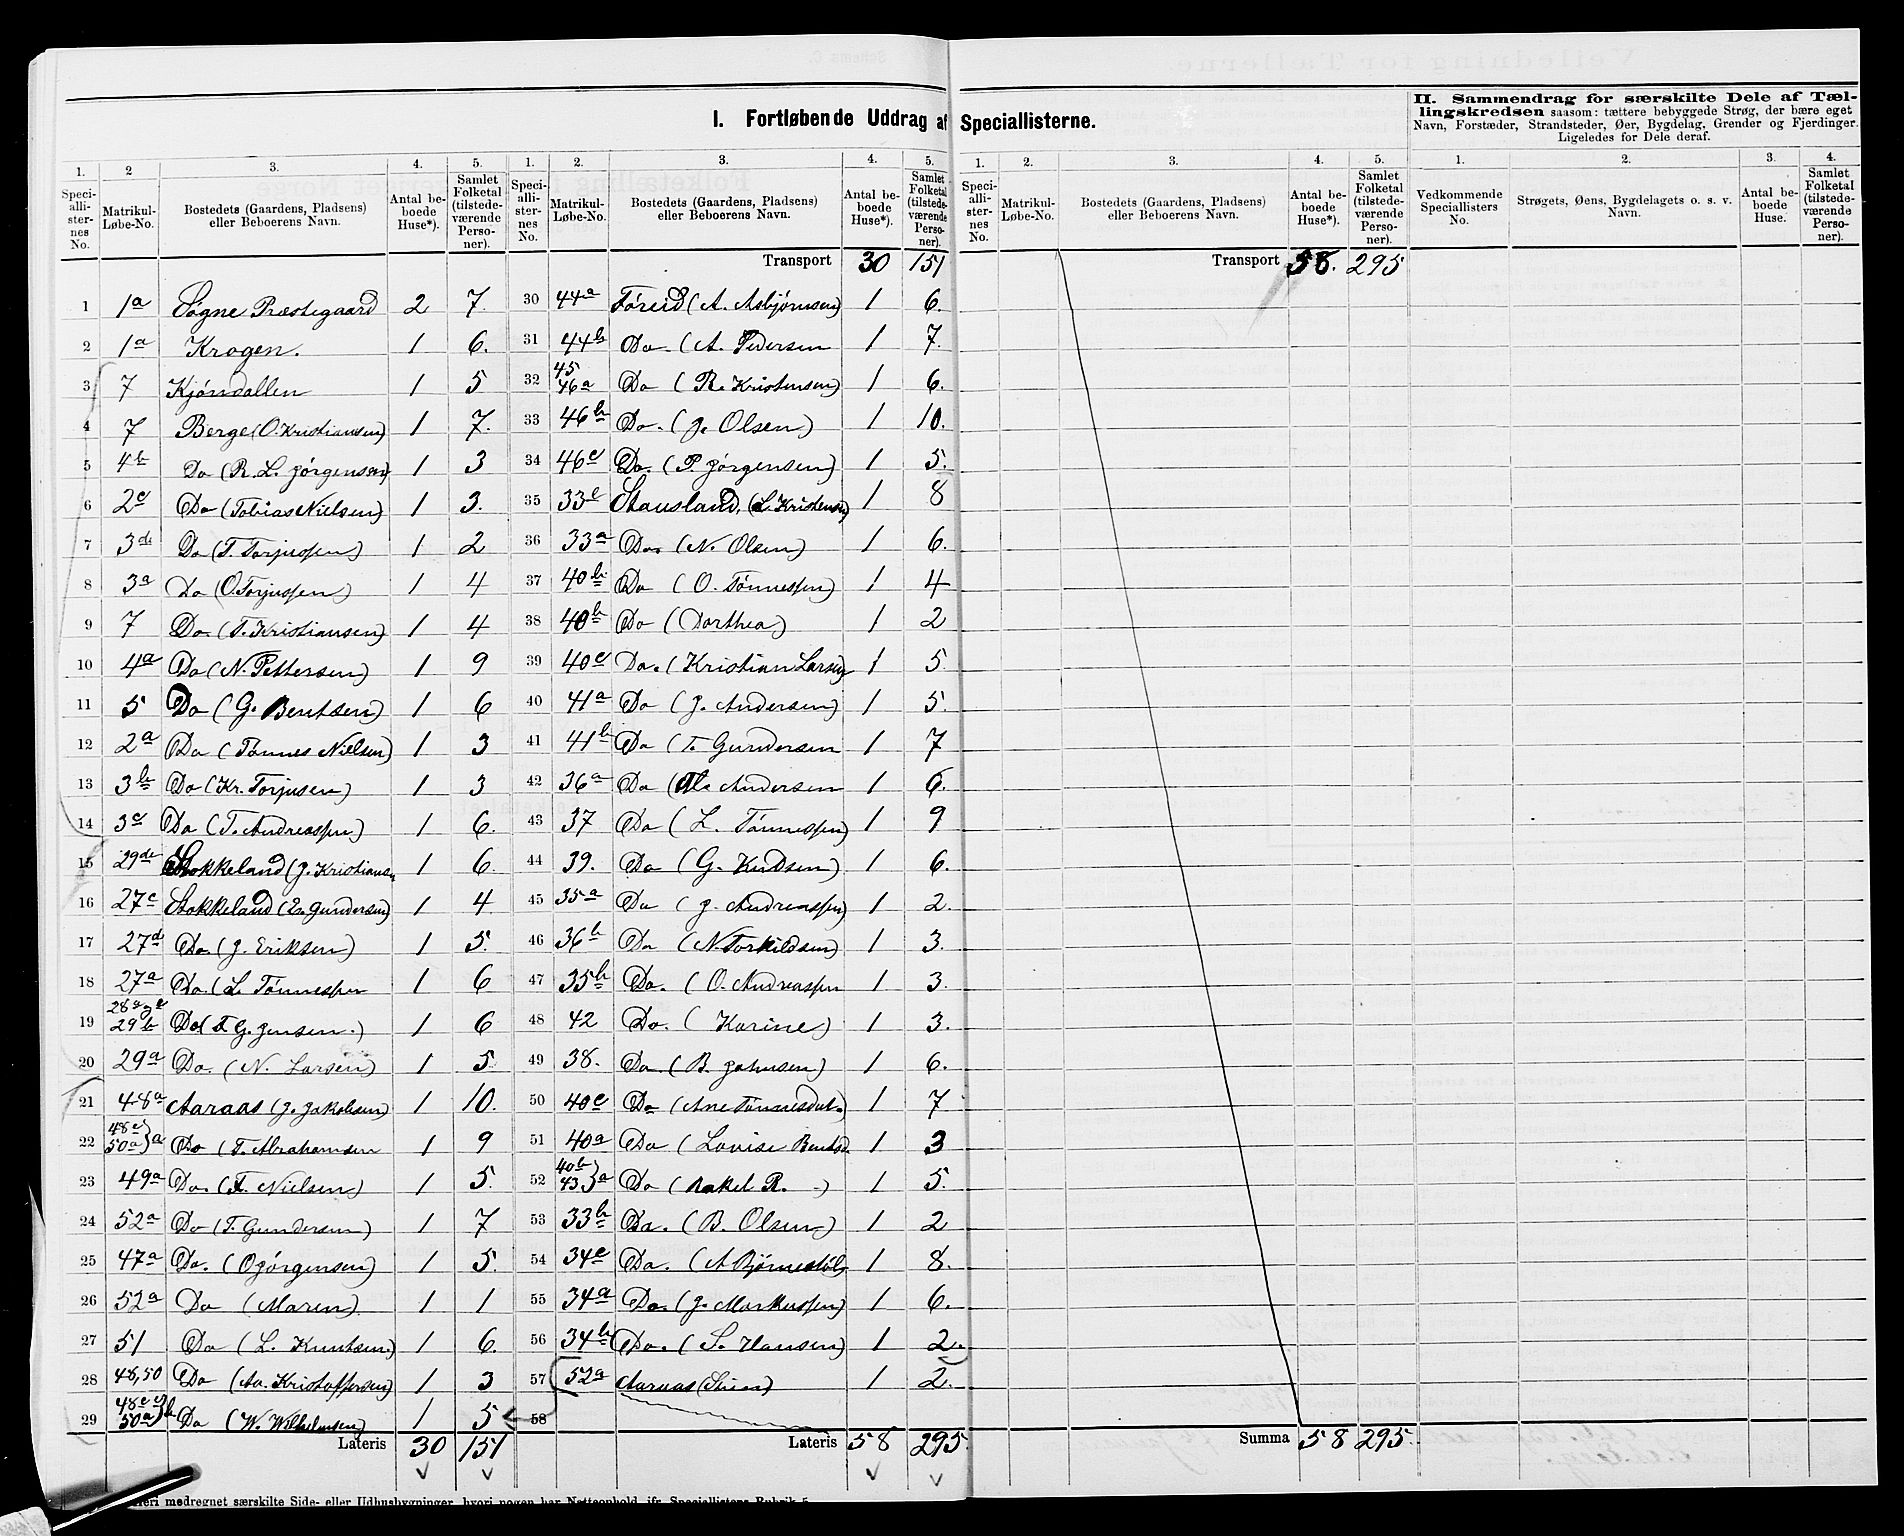 I. Fortløbende Uddrag af Speciallisterne.
II. Sammendrag for særskilte Dele af Tæl-
lingskredsen saasom: tættere bebyggede Strøg, der bære eget
Navn, Forstæder, Strandsteder, Øer, Bygdelag, Grender og Fjerdinger.
Ligeledes for Dele deraf.
1. 2 3. 4. 5. 1. 2. 3. 4. 5. 1. 2. 3. 4. 5. 1. 2. 3. 4.
Speci-alli-ster-nes No. Matrikul-Løbe-No. Bostedets (Gaardens, Pladsens) eller Beboerens Navn. Antal be-boede Huse*). Samlet Folketal (tilstede-værende Perso-ner).
Speci-alli-ster-nes No. Matrikul-Løbe-No. Bostedets (Gaardens, Pladsens) eller Beboerens Navn. Antal be-boede Huse*). Samlet Folketal (tilstede-værende Perso-ner).
Speci-alli-ster-nes No. Matrikul-Løbe-No. Bostedets (Gaardens, Pladsens) eller Beboerens Navn. Antal be-boede Huse*). Samlet Folketal (tilstede-værende Perso-ner).
Vedkommende Speciallisters No. Strøgets, Øens, Bygdelagets o. s. v. Navn. Antal be-boede Huse. Samlet Folketal (tilstede-værende Perso-ner).
1 1a Sogne Præstegaard 2 7.
2 1a Krogen. 1 6.
3 7 Kjøndallen 1 5
4 7 Berge (O. Kristiansen) 1 7.
5 4b Do (R. L. Jørgensen) 1 3
6 2c Do (Tobias Nielsen) 1 3.
7 3d Do (T. Torjussen) 1 2
8 3a Do (O. Torjussen) 1 4
9 7 Do (T. Kristiansen) 1 4
10 4a Do (N. Pettersen) 1 9
11 5 Do (G. Bentsen) 1 6
12 2a Do (Tønnes Nielsen) 1 3
13 3b Do (Kr. Torjusen) 1 3
14 3c Do (T. Andreassen) 1 6.
15 29de Stokkeland (J. Kristiansen 1 6.
16 27c Stokkeland (Gundersen) 1 4.
17 27d Do. (J. Eriksen) 1 5.
18 27a Do. (L. Tønnessen 1 6
19 29b Do (T G. Jensen.) 1 6
20 29a Do. (N. Larsen) 1 5
21 48a Aaraas (J. Jakobsen) 1 10.
22 48c 50a}a Do (T. Abrahamsen 1 9
23 49a Do. (T. Nielsen) 1 5.
24 52a Do (T. Gundersen) 1 7
25 47a Do. (O Jørgensen) 1 5.
26 52a Do (Maren) 1 1
27 51 Do (L. Knutsen.) 1 6.
28 48,50 Do (Aa. Kristoffersen) 1 3
29 50a}b Do (W. Wilhelmsen) 1 5
Lateris 30 151
Transport 30 151
30 44a Føreid (A. Asbjørnsen) 1 6.
31 44b Do. (A. Pedersen 1 7.
32 45 46a Do (R. Kristensen) 1 6.
33 46b Do. (J. Olsen) 1 10.
34 46c Do. (P. Jørgensen) 1 5.
35 33c Stausland, (L. Kristensen) 1 8
36 33a Do. (N. Olsen) 1 6.
37 40b Do (O. Tønnessen) 1 4
38 40b Do (Dorthea) 1 2
39 40c Do. (Kristian Larsen 1 5
40 41a Do (J. Andersen) 1 5.
41 41b Do (T. Gundersen 1 7
42 36a Do (Andersen 1 6.
43 37 Do (L. Tønnessen) 1 9
44 39. Do (G. Knudsen) 1 6.
45 35a Do (J. Andreassen) 1 2.
46 36b Do (N. Torkildsen) 1 3.
47 35b Do. (O. Andreassen 1 3.
48 42 Do. (Karine) 1 3.
49 38. Do. (B. Johnsen) 1 6.
50 40c Do (Ane Tønnesdat. 1 7
51 40a Do (Lovise Bentsd. 1 3
52 40b 43}a Do (Rakel R. ) 1 5.
53 33b Do. (B. Olsen) 1 2
54 34c Do. (A Bjørnestøl) 1 8.
55 34a Do. (J. Markussen) 1 6.
56 34b Do. (S. Hansen) 1 2.
57 52a Aaraas (Stine) 1 2.
58
Lateris 58 295.
Transport 58. 295
Summa 58 295.